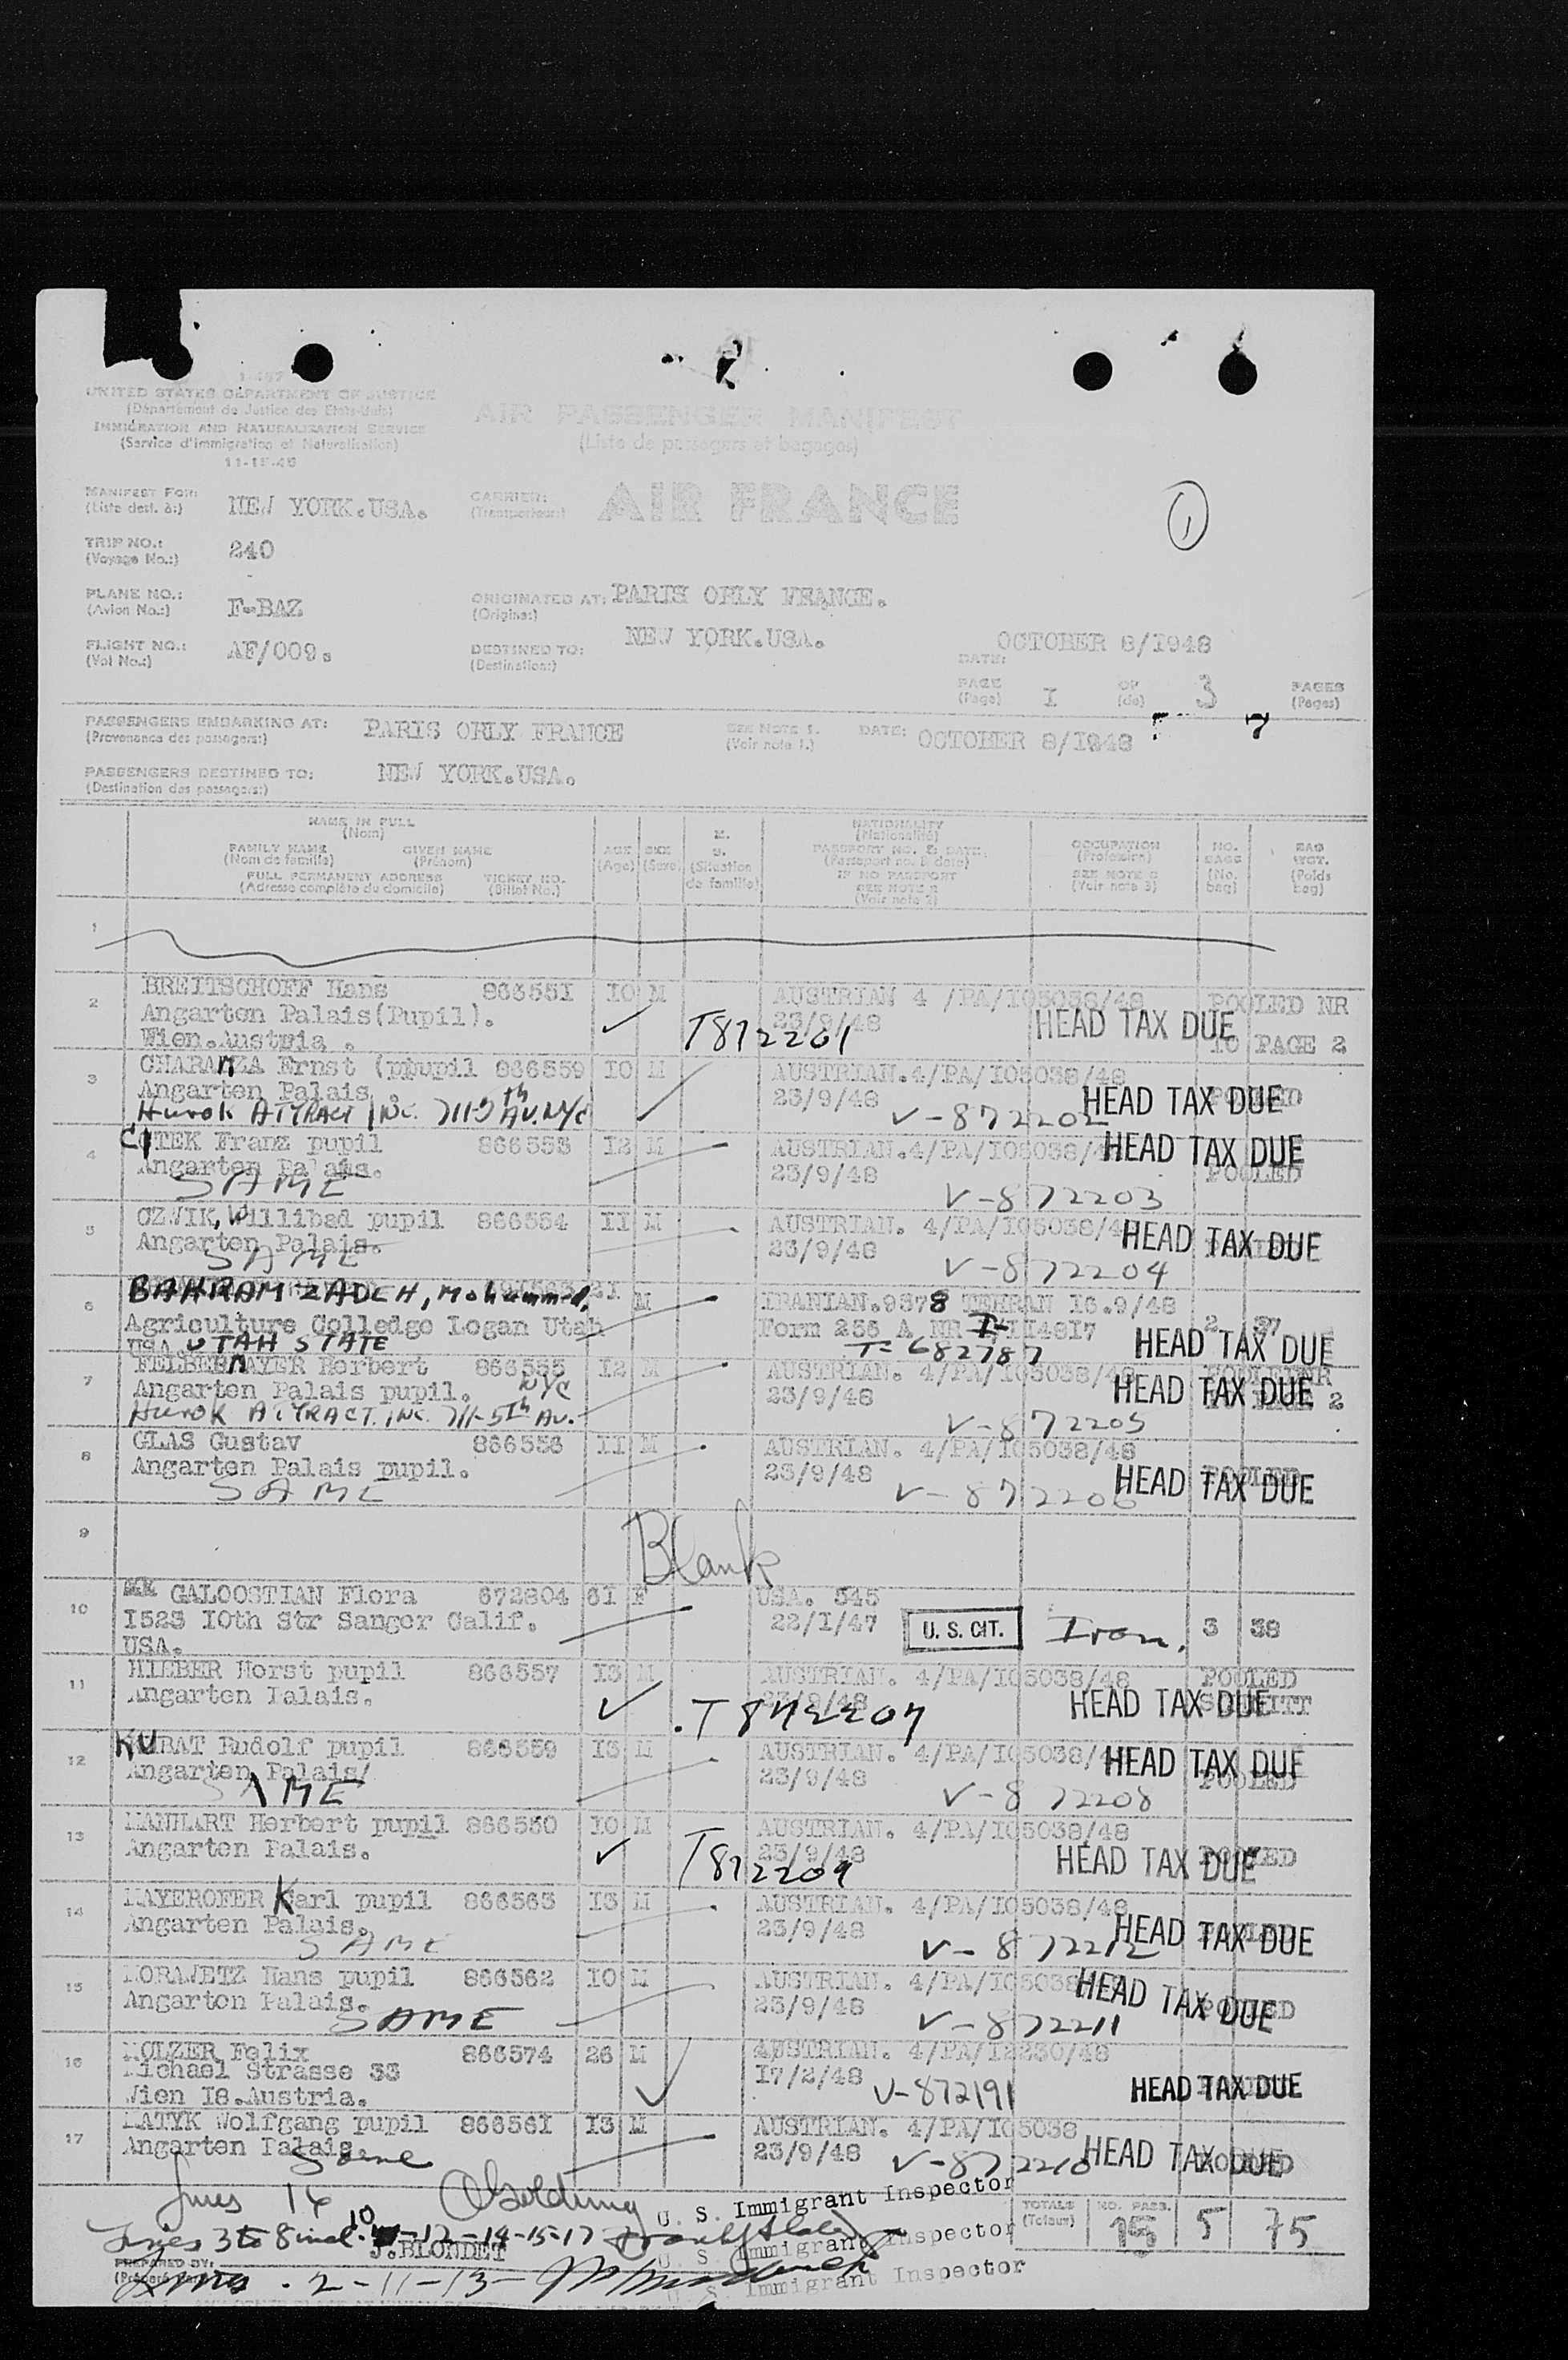 1-467
UNITED STATES DEPARTMENT OF JUSTICE
(Département de Justice des Etats-Unis)
IMMIGRATION AND NATURALIZATION SERVICE
(Service d'immigration et Naturalisation)
11-15-46
AIR PASSENGER MANIFEST
(Liste de passagers et bagages)
MANIFEST FOR: NEW YORK.USA.
(Liste dest. à:)
CARRIER: AIR FRANCE
(Transporteur:)
1
TRIP NO.: 240
(Voyage No.:)
PLANE NO.: F-BAZ
(Avion No.:)
ORIGINATED AT: PARIS ORLY FRANCE.
(Origine:)
FLIGHT NO.: AF/009.
(Vol No.:)
DESTINED TO: NEW YORK.USA.
(Destination:)
DATE: OCTOBER 8/1948
PAGE I OF 3 PAGES
(Page) (de) (Pages)
PASSENGERS EMBARKING AT: PARIS ORLY FRANCE
(Provenance des passagers:)
SEE NOTE 1.
(Voir note 1.)
DATE: OCTOBER 8/1948
PASSENGERS DESTINED TO: NEW YORK.USA.
(Destination des passagers:)
NAME IN FULL
(Nom)
FAMILY NAME GIVEN NAME
(Nom de famille) (Prénom)
FULL PERMANENT ADDRESS TICKET NO.
(Adresse complète du domicile) (Billet No.)
AGE
(Age)
SEX
(Sexe)
M.
S.
(Situation
de famille)
NATIONALITY
(Nationalité)
PASSPORT NO. & DATE
(Passeport no. & date)
IF NO PASSPORT
SEE NOTE 2
(Voir note 2)
OCCUPATION
(Profession)
SEE NOTE 3
(Voir note 3)
NO.
BAGS
(No.
bag)
BAG
WGT.
(Poids
bag)
1
2 BREITSCHOFF Hans 866551 IO M AUSTRIAN 4 /PA/I05038/48 POOLED NR
Angarten Palais(Pupil). 23/9/48 HEAD TAX DUE
Wien.Austria . T872201 10 PAGE 2
3 CHARANZA Ernst (pupupil 866559 IO M AUSTRIAN.4/PA/I05038/48
Angarten Palais 23/9/48 HEAD TAX DUE POOLED
Hurok ATTRACT INC. 711-5th AV. NYC V-872202
4 CITEK Franz pupil 866553 I2 M AUSTRIAN.4/PA/I05038/48 HEAD TAX DUE
Angarten Palais. 23/9/48 POOLED
SAME V-872203
5 CZWIK, Willibad pupil 866554 II M AUSTRIAN. 4/PA/I05038/48 HEAD TAX DUE
Angarten Palais. 23/9/48
SAME V-872204
6 BAHRAM ZADEH, Mohammed, 21 M IRANIAN.9378 TEHRAN I6.9/48 2 37
Agriculture Colledge Logan Utah Form 256 A NR II4817 HEAD TAX DUE
USA. UTAH STATE T=682787
7 FELBERMAYER Herbert 866555 I2 M AUSTRIAN. 4/PA/I05038/48 POOLED NR
Angarten Palais pupil. NYC 23/9/48 HEAD TAX DUE
Hurok ATTRACT. INC. 711-5th Av. V-872205
8 GLAS Gustav 866556 II M AUSTRIAN. 4/PA/I05038/48
Angarten Palais pupil. 23/9/48 HEAD TAX DUE POOLED
SAME V-872206
9 Blank
10 GALOOSTIAN Flora 672804 61 F USA. 545
I523 IOth Str Sanger Calif. 22/I/47 U. S. CIT. Iron. 3 38
USA.
11 HIEBER Horst pupil 866557 I3 M AUSTRIAN. 4/PA/I05038/48 POOLED
Angarten Palais. 23/9/48 .T 872207 HEAD TAX DUE
12 KUBAT Rudolf pupil 866559 I3 M AUSTRIAN. 4/PA/I05038/48 HEAD TAX DUE
Angarten Palais/ 23/9/48 POOLED
SAME V-872208
13 MANHART Herbert pupil 866550 IO M AUSTRIAN. 4/PA/I05038/48
Angarten Palais. 23/9/48 HEAD TAX DUE POOLED
T872209
14 MAYEROFER Karl pupil 866563 I3 M AUSTRIAN. 4/PA/I05038/48
Angarten Palais. 23/9/48 HEAD TAX DUE POOLED
SAME V-872212
15 MORAWETZ Hans pupil 866562 IO M AUSTRIAN. 4/PA/I05038 HEAD TAX DUE
Angarten Palais. 23/9/48 POOLED
SAME V-872211
16 MOLZER Felix 866574 26 M AUSTRIAN. 4/PA/I2230/48
Michael Strasse 33 I7/2/48 HEAD TAX DUE
Wien I8.Austria. V-872191
17 MATYK Wolfgang pupil 866561 I3 M AUSTRIAN. 4/PA/I05038
Angarten Palais. 23/9/48 HEAD TAX DUE POOLED
Same V-872210
Lines 16 Golding U. S. Immigrant Inspector
Lines 3 to 8 incl. 10 -12-14-15-17 U. S. Immigrant Inspector
PREPARED BY: J.BLONDET
Lines . 2-11-13- U. S. Immigrant Inspector
TOTALS
(Totaux)
NO. PASS.
15 5 75